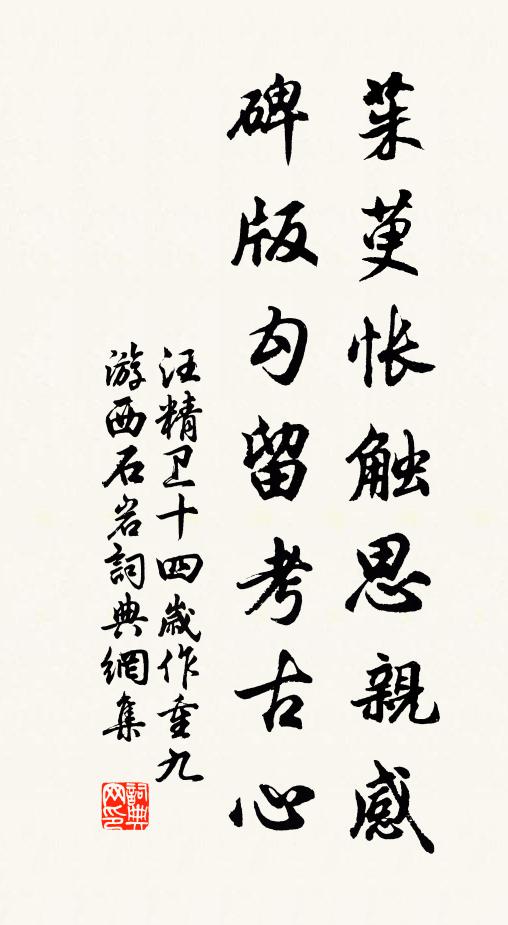 茱萸怅触思親感
碑版勾留考古心
汪精卫十四歲作重九
游西石岩詞典網集
詞典网印